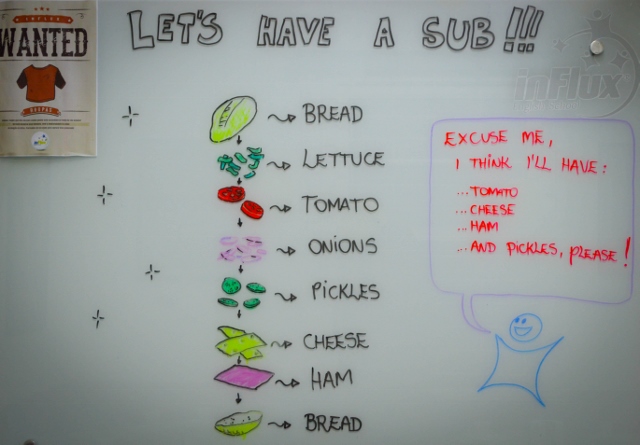 LET'S HAVE A SUB!!!
WANTED
inFlux
BREAD
LETTUCE
TOMATO
ONIONS
PICKLES
CHEESE
HAM
BREAD
EXCUSE ME,
I THINK I'LL HAVE:
...TOMATO
...CHEESE
...HAM
...AND PICKLES, PLEASE!